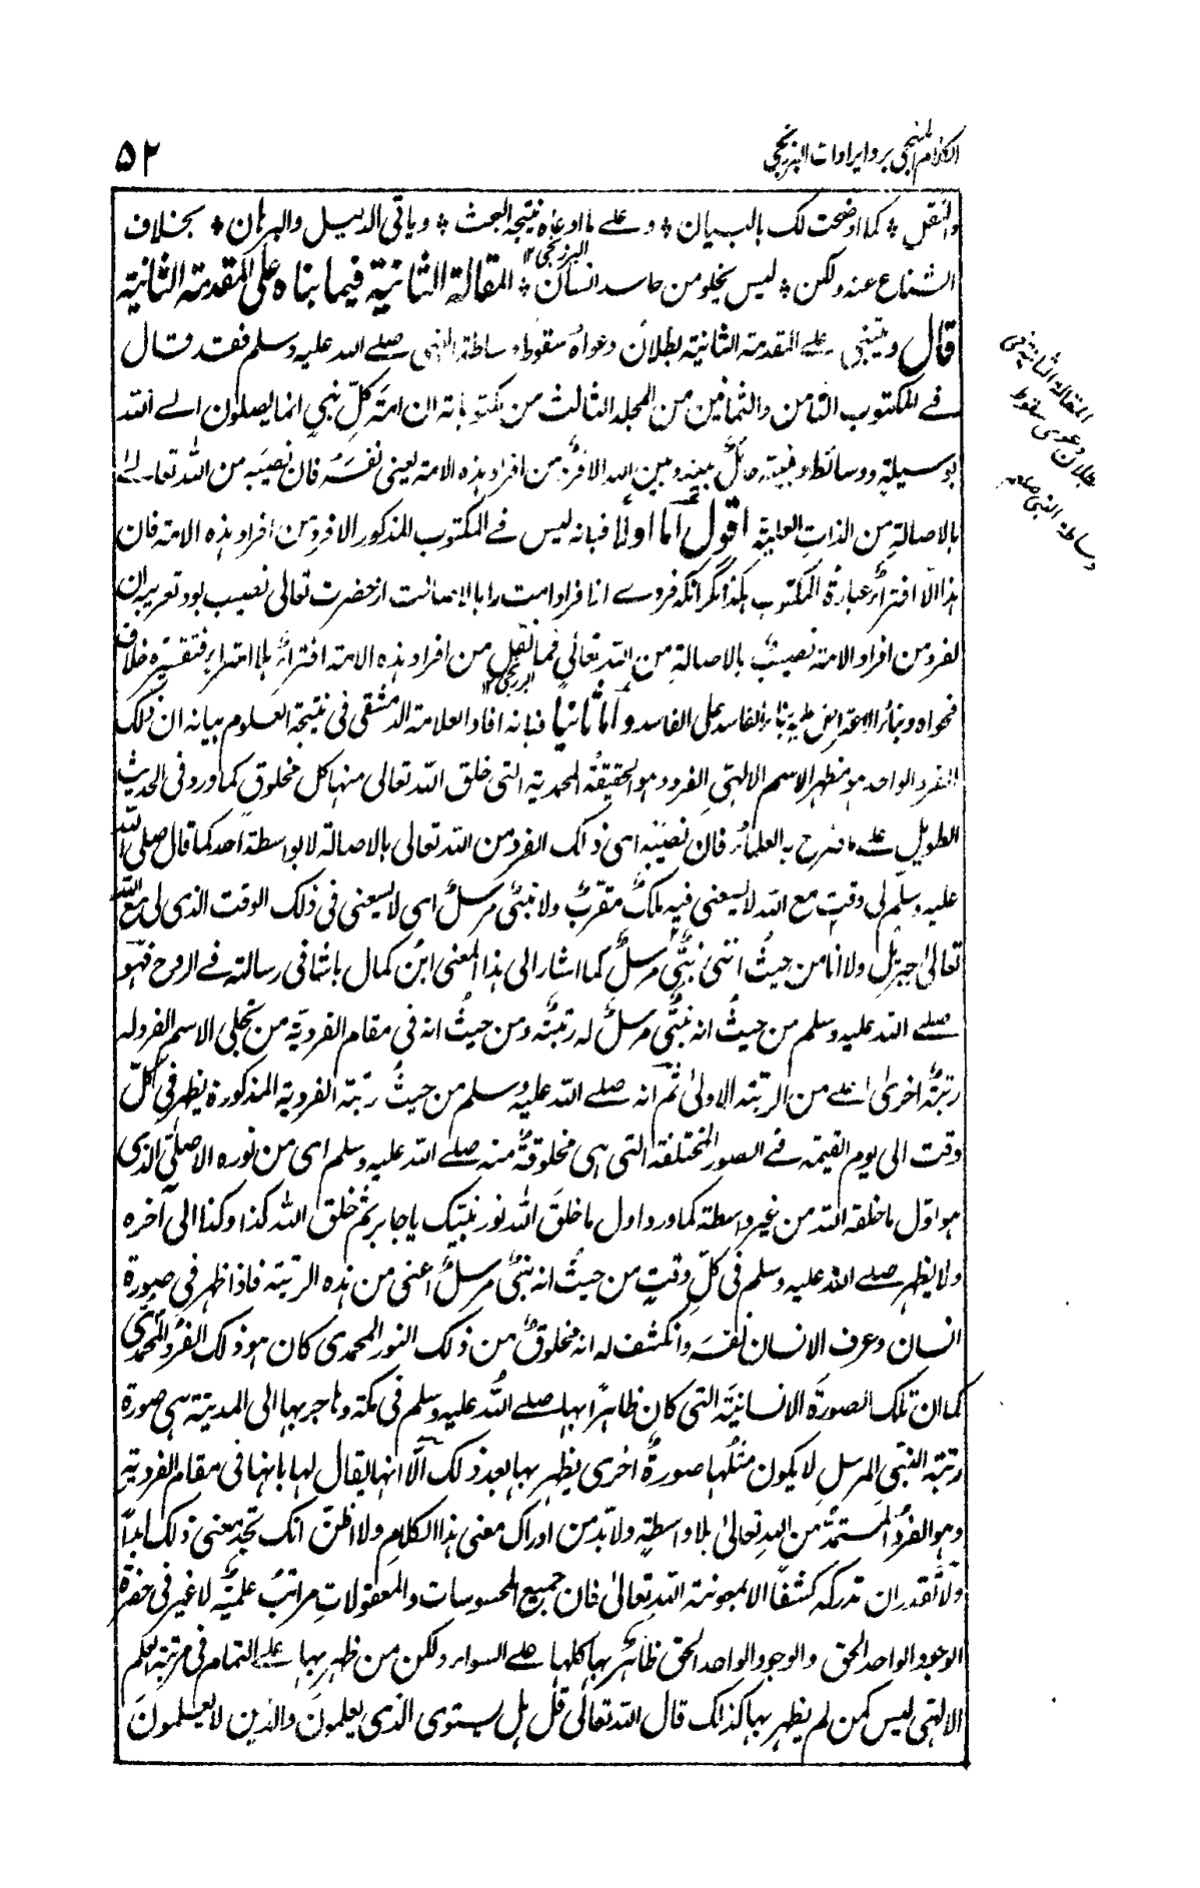 الكلام المنجي برد ايرادات البرزنجي
٥٢
والنقل * كما اوضحت لك بالبيان * وعلى ما ادعاه نتيجة البحث * وياتى الدليل والبرهان * بخلاف
البرزنجي ١٢
الشناع عنه ولكن * ليس يخلو من حاسد انسان * المقالة الثانية فيما بناه على المقدمة الثانية
قال ويتبني على المقدمة الثانية بطلان دعواه سقوط وساطة النبي صلى الله عليه وسلم فقد قال
فى المكتوب الثامن والثمانين من المجلد الثالث من مكتوباته ان امة كل نبي انما يصلون الى الله
بوسيلة ووسائط ونبيته حائل بينه وبين الله الا فرد من افراد هذه الامة يعني نفسه فان نصيبه من الله تعالى
بالاصالة من الذات العلية اقول اما اولا فبانه ليس فى المكتوب المذكور الا فرد من افراد هذه الامة فان
هذا الا افتراء وعبارة المكتوب هكذا مگر آنكه فردے از افراد امت را بالاصالت از حضرت تعالى نصيب بود تعريبه ان
لفرد من افراد الامة نصيب بالاصالة من الله تعالى فما نقل من افراد هذه الامة افتراء بلا امتراء فتفسيره خلاف
البرزنجي ١٢
فحواه وبناء الاعتراض عليه بناء الفاسد على الفاسد واما ثانيا فبانه افاد العلامة الدمشقى فى نتيجة العلوم بيانه ان ذلك
الفرد الواحد هو مظهر الاسم الالهي الفرد وهو الحقيقة المحمدية التى خلق الله تعالى منها كل مخلوق كما ورد فى الحديث
الطويل على ما صرح به العلماء فان نصيبه اى ذلك الفرد من الله تعالى بالاصالة لا بواسطة احد كما قال صلى الله
عليه وسلم لى وقت مع الله لا يسعنى فيه ملك مقرب ولا نبي مرسل اى لا يسعنى فى ذلك الوقت الذى لى مع الله
تعالى جبريل ولا انا من حيث اننى نبي مرسل كما اشار الى هذا المعنى ابن كمال باشا فى رسالته فى الروح فهو
صلى الله عليه وسلم من حيث انه نبي مرسل له رتبة ومن حيث انه فى مقام الفردية من تجلى الاسم الفرد له
رتبة اخرى اعلى من الرتبة الاولى ثم انه صلى الله عليه وسلم من حيث رتبة الفردية المذكورة يظهر فى كل
وقت الى يوم القيمة فى الصور المختلفة التى هى مخلوقة منه صلى الله عليه وسلم اى من نوره الاصلى الذى
هو اول ما خلقه الله من غير واسطة كما ورد اول ما خلق الله نور نبيك يا جابر ثم خلق الله كذا وكذا الى آخره
ولا يظهر صلى الله عليه وسلم فى كل وقت من حيث انه نبي مرسل اعنى من هذه الرتبة فاذا ظهر فى صورة
انسان وعرف الانسان نفسه وانكشف له انه مخلوق من ذلك النور المحمدى كان هو ذلك الفرد المحمدى
كما ان تلك الصورة الانسانية التى كان ظاهرا بها صلى الله عليه وسلم فى مكة وهاجر بها الى المدينة هى صورة
رتبة النبي المرسل لا يكون مثلها صورة اخرى يظهر بها بعد ذلك الا انها يقال لها بانها فى مقام الفردية
وهو الفرد المستمد من الله تعالى بلا واسطة ولا بد من ادراك معنى هذا الكلام ولا اظن انك تجد معنى ذلك ابدا
ولا تقدر ان تدركه كشفا الا بمعونة الله تعالى فان جميع المحسوسات والمعقولات مراتب علمية لا غير فى حضرة
الوجود الواحد الحق والوجود الواحد الحق ظاهر بها كلها على السواء ولكن من ظهر بها على التمام فى مرتبة العلم
الالهى ليس كمن لم يظهر بها كذلك قال الله تعالى قل هل يستوى الذى يعلمون والذين لا يعلمون
المقالة الثانية فى
بطلان دعوى سقوط
وساطة النبي صلعم